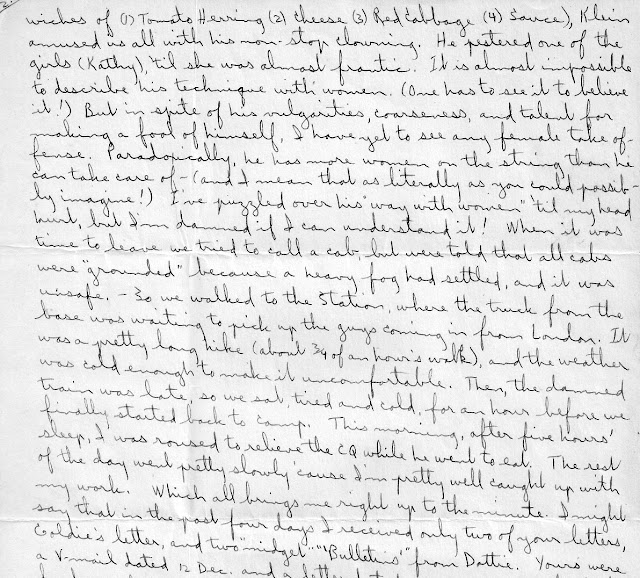 2.
wiches of (1) Tomato Herring (2) Cheese (3) Red Cabbage (4) Sauce), Klein
amused us all with his non-stop clowning. He pestered one of the
girls (Kathy), 'til she was almost frantic. It is almost impossible
to describe his technique with women. (One has to see it to believe
it!) But in spite of his vulgarities, coarseness, and talent for
making a fool of himself, I have yet to see any female take of-
fense. Paradoxically, he has more women on the string than he
can take care of - (and I mean that as literally as you could possib-
ly imagine!) I've puzzled over his "way with women" 'til my head
hurt, but I'm damned if I can understand it! When it was
time to leave we tried to call a cab, but were told that all cabs
were "grounded" because a heavy fog had settled, and it was
unsafe. - So we walked to the Station, where the truck from the
base was waiting to pick up the guys coming in from London. It
was a pretty long hike (about 3/4 of an hour's walk), and the weather
was cold enough to make it uncomfortable. Then, the damned
train was late, so we sat, tired and cold, for an hour before we
finally started back to camp. This morning, after five hours'
sleep, I was roused to relieve the CQ while he went to eat. The rest
of the day went pretty slowly 'cause I'm pretty well caught up with
my work. Which all brings me right up to the minute. I might
say that in the past four days I received only two of your letters,
Goldie's letter, and two "midget" "Bulletins" from Dottie. Yours were
a V-mail dated 12 Dec. and a letter